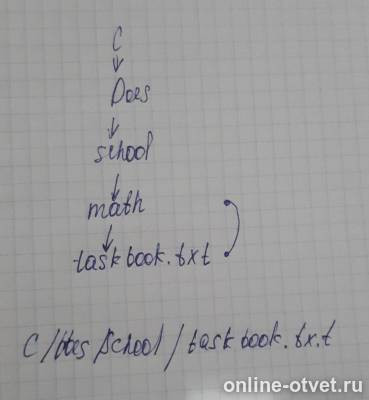 C
Does
school
math
taskbook.txt
C/Does/School/taskbook.tx.t
online-otvet.ru